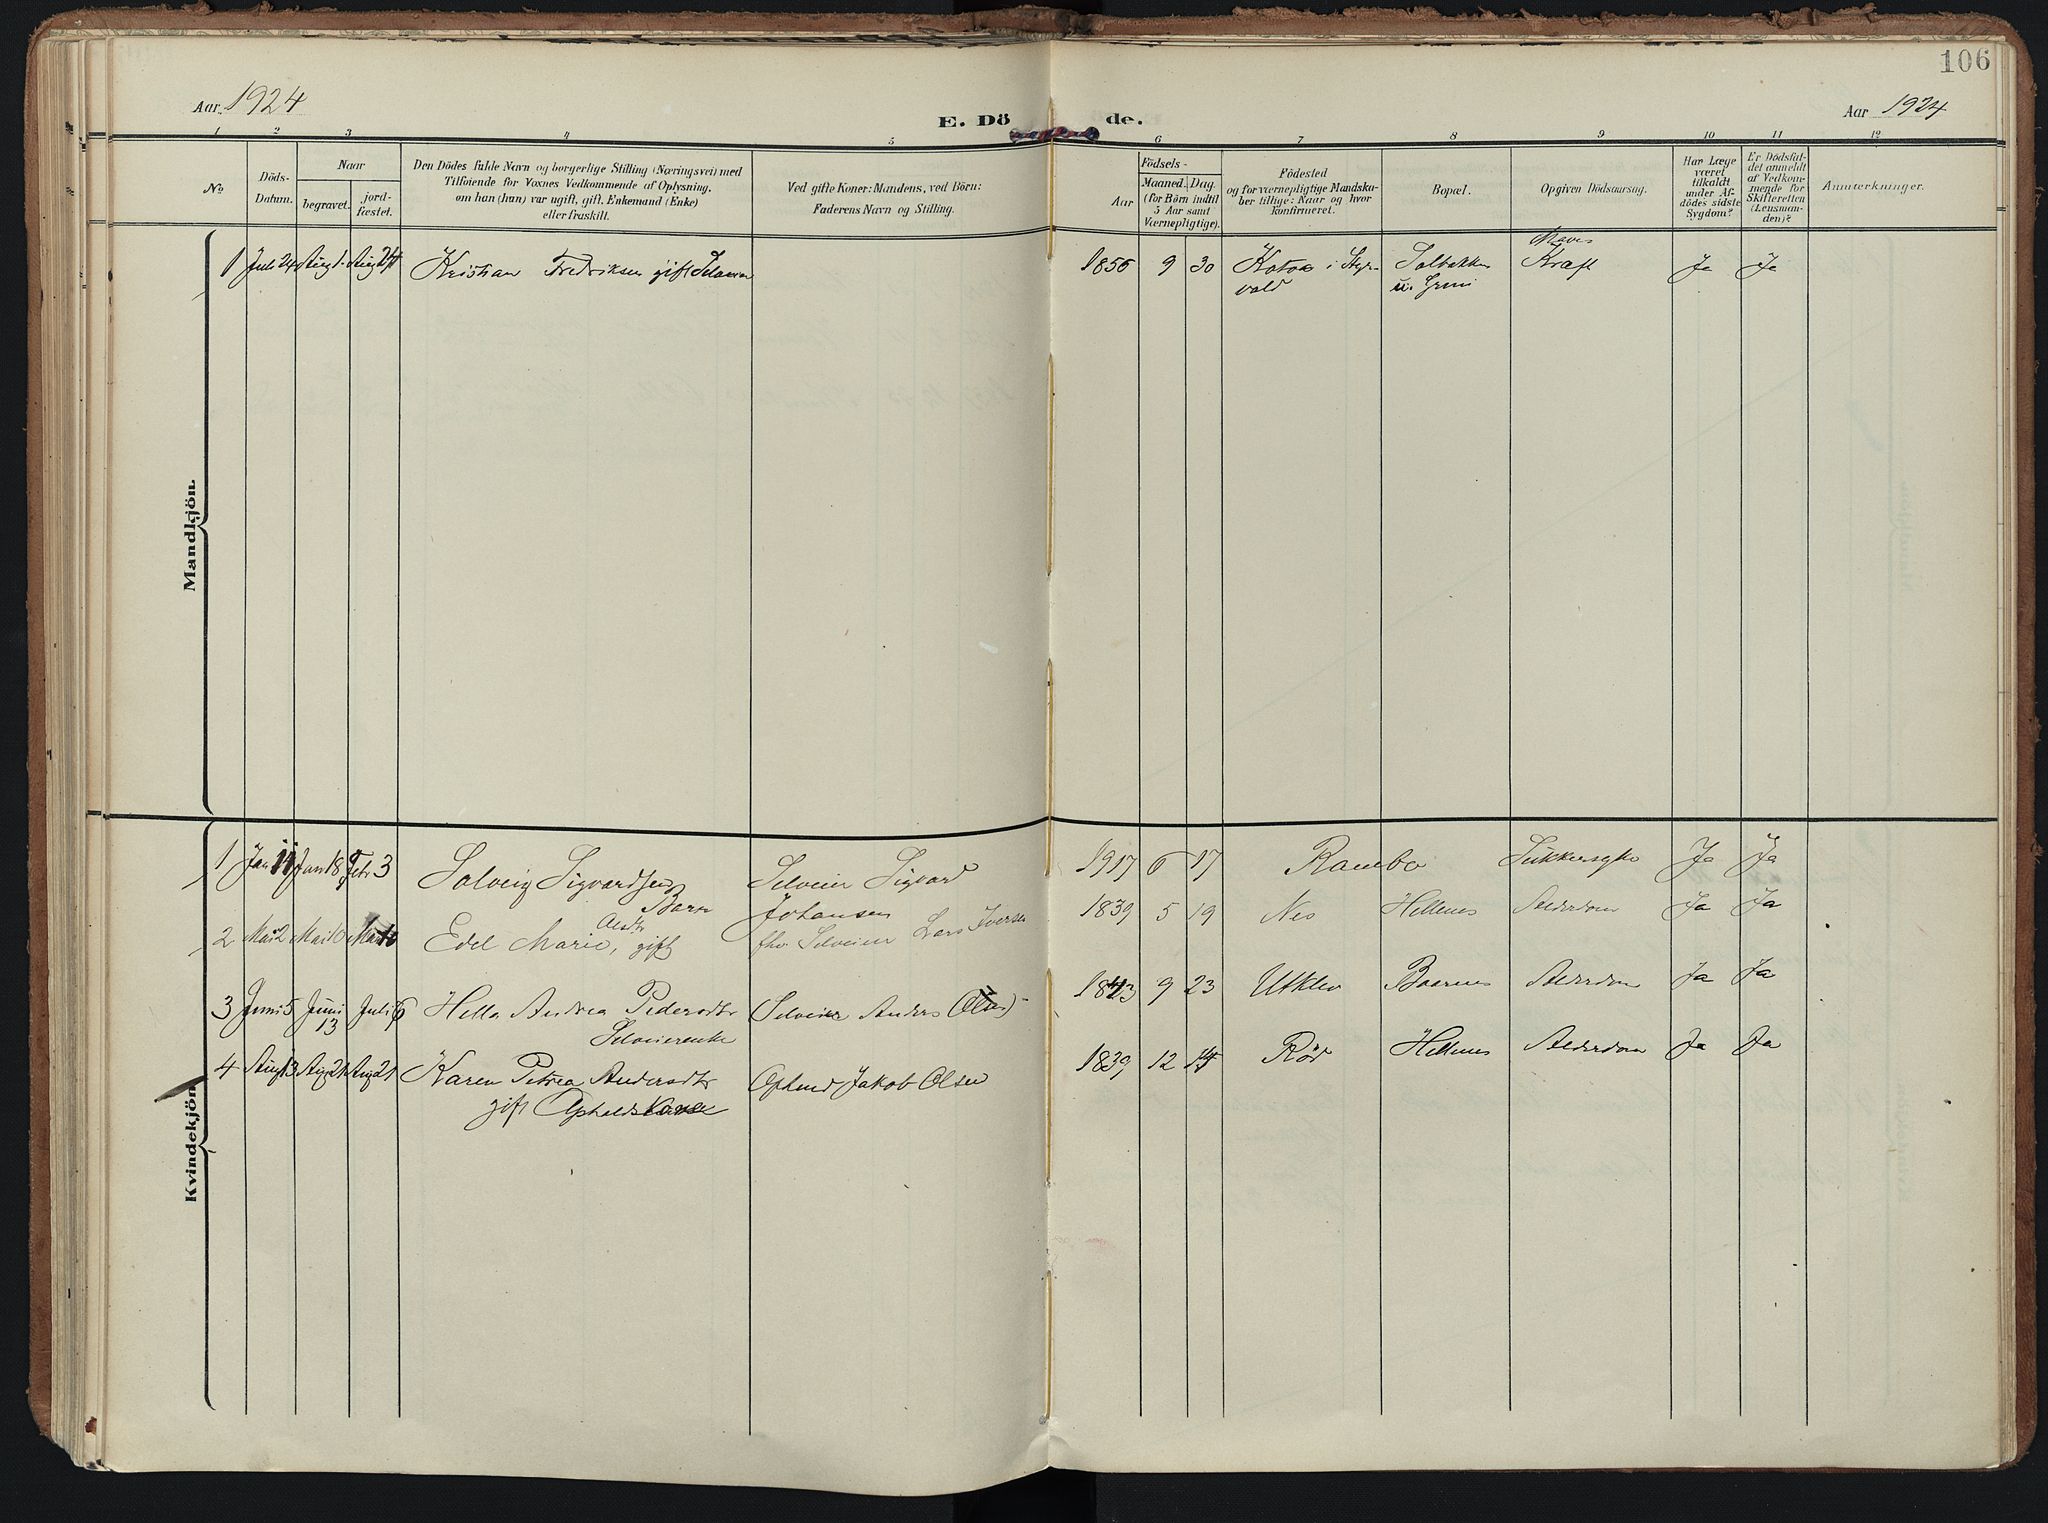 106
Aar 1924
E. Dö de.
Aar 1924
1 2 3 4 5 6 7 8 9 10 11 12
No
Döds-
Datum.
Naar
begravet.
jord-
fæstet.
Den Dödes fulde Navn og borgerlige Stilling (Næringsvei) med
Tilföiende for Voxnes Vedkommende af Oplysning,
om han (hun) var ugift, gift, Enkemand (Enke)
eller fraskilt.
Ved gifte Koner: Mandens, ved Börn:
Faderens Navn og Stilling.
Födsels-
Aar
Maaned. Dag.
(for Börn indtil
5 Aar samt
Værnepligtige).
Födested
og for værnepligtige Mandska-
ber tillige: Naar og hvor
konfirmeret.
Bopæl.
Opgiven Dödsaarsag.
Har Læge
været
tilkaldt
under Af-
dödes sidste
Sygdom?
Er Dödsfal-
det anmeldt
af Vedkom-
mende for
Skifteretten
(Lensman-
den)?
Anmærkninger.
Mandkjön.
1 Juli 24 Aug 1 Aug 24 Kristian Fredriksen gift 1856 9 30 i Solbakken Kræft Ja Ja
vold u. Grini
Kvindekjön.
1 Jan 11 Jan 18 Febr 3 Solveig Sigvardsen Selveier Sigvard 1917 6 17 Rambo Sukkersyke Ja Ja
Barn Johansen
2 Mai 2 Mai 10 Mai 10 Edel Marie, gift fhv. Selveier Lars Iversen 1839 5 19 Nes Hellenes Alderdom Ja Ja
3 Juni 5 Juni 13 Juli 6 Hella Andrea Pedersdtr (Selveier Anders Olsen) 1843 9 23 Utklev Alderdom Ja Ja
Selveierenke
4 Aug 13 Aug 21 Aug 21 Karen Petrea Andersdtr Jakob Olsen 1839 12 Röd Hellenes Alderdom Ja Ja
gift Opholdskone